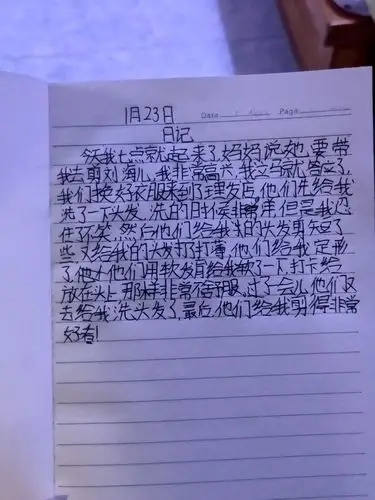 1月23日 Date Page
日记
今天我七点就起来了,妈妈说她要带
我去剪刘海儿,我非常高兴,我立马就答应了,
我们换好衣服来到了理发店,他们先给我
洗了一下头发,洗的时候非常 但是我忍
住了不笑,然后他们给我的头发剪短了
些,又给我的头发打了打薄,他们给我定形
了,他 他们用软发 给我 了一下,打卡给
放在头上,那样非常不舒服,过了会儿,他们又
去给我洗头发了,最后,他们给我剪得非常
好看!